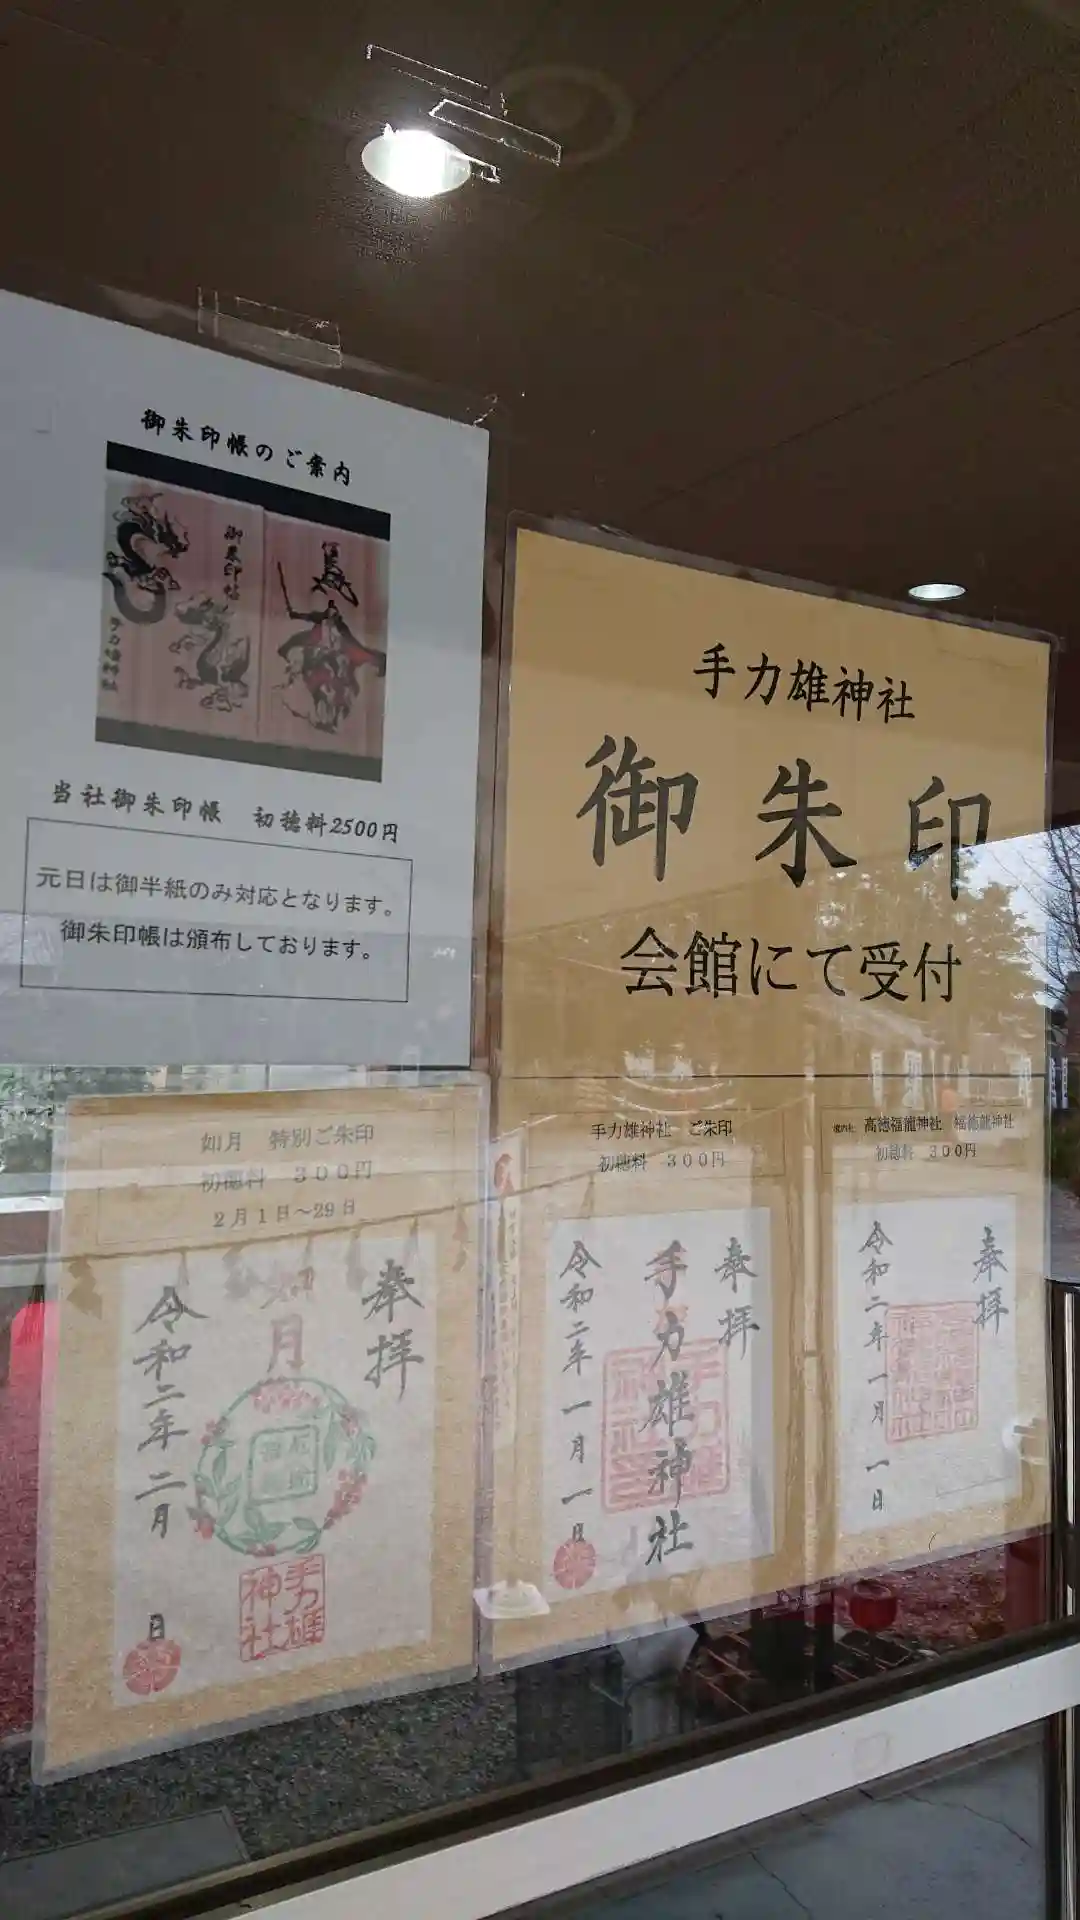 御朱印帳のご案内
御朱印帖
手力雄神社
馬
当社御朱印帳　初穂料2500円
元日は御半紙のみ対応となります。
御朱印帳は頒布しております。
手力雄神社
御朱印
会館にて受付
如月　特別ご朱印
初穂料　３００円
２月１日～29日
奉拝
如月
令和二年 二月　日
手力雄神社
手力雄神社　ご朱印
初穂料　３００円
奉拝
手力雄神社
令和二年一月一日
境内社　高徳福龍神社　福徳龍神社
初穂料　３００円
奉拝
令和二年一月一日